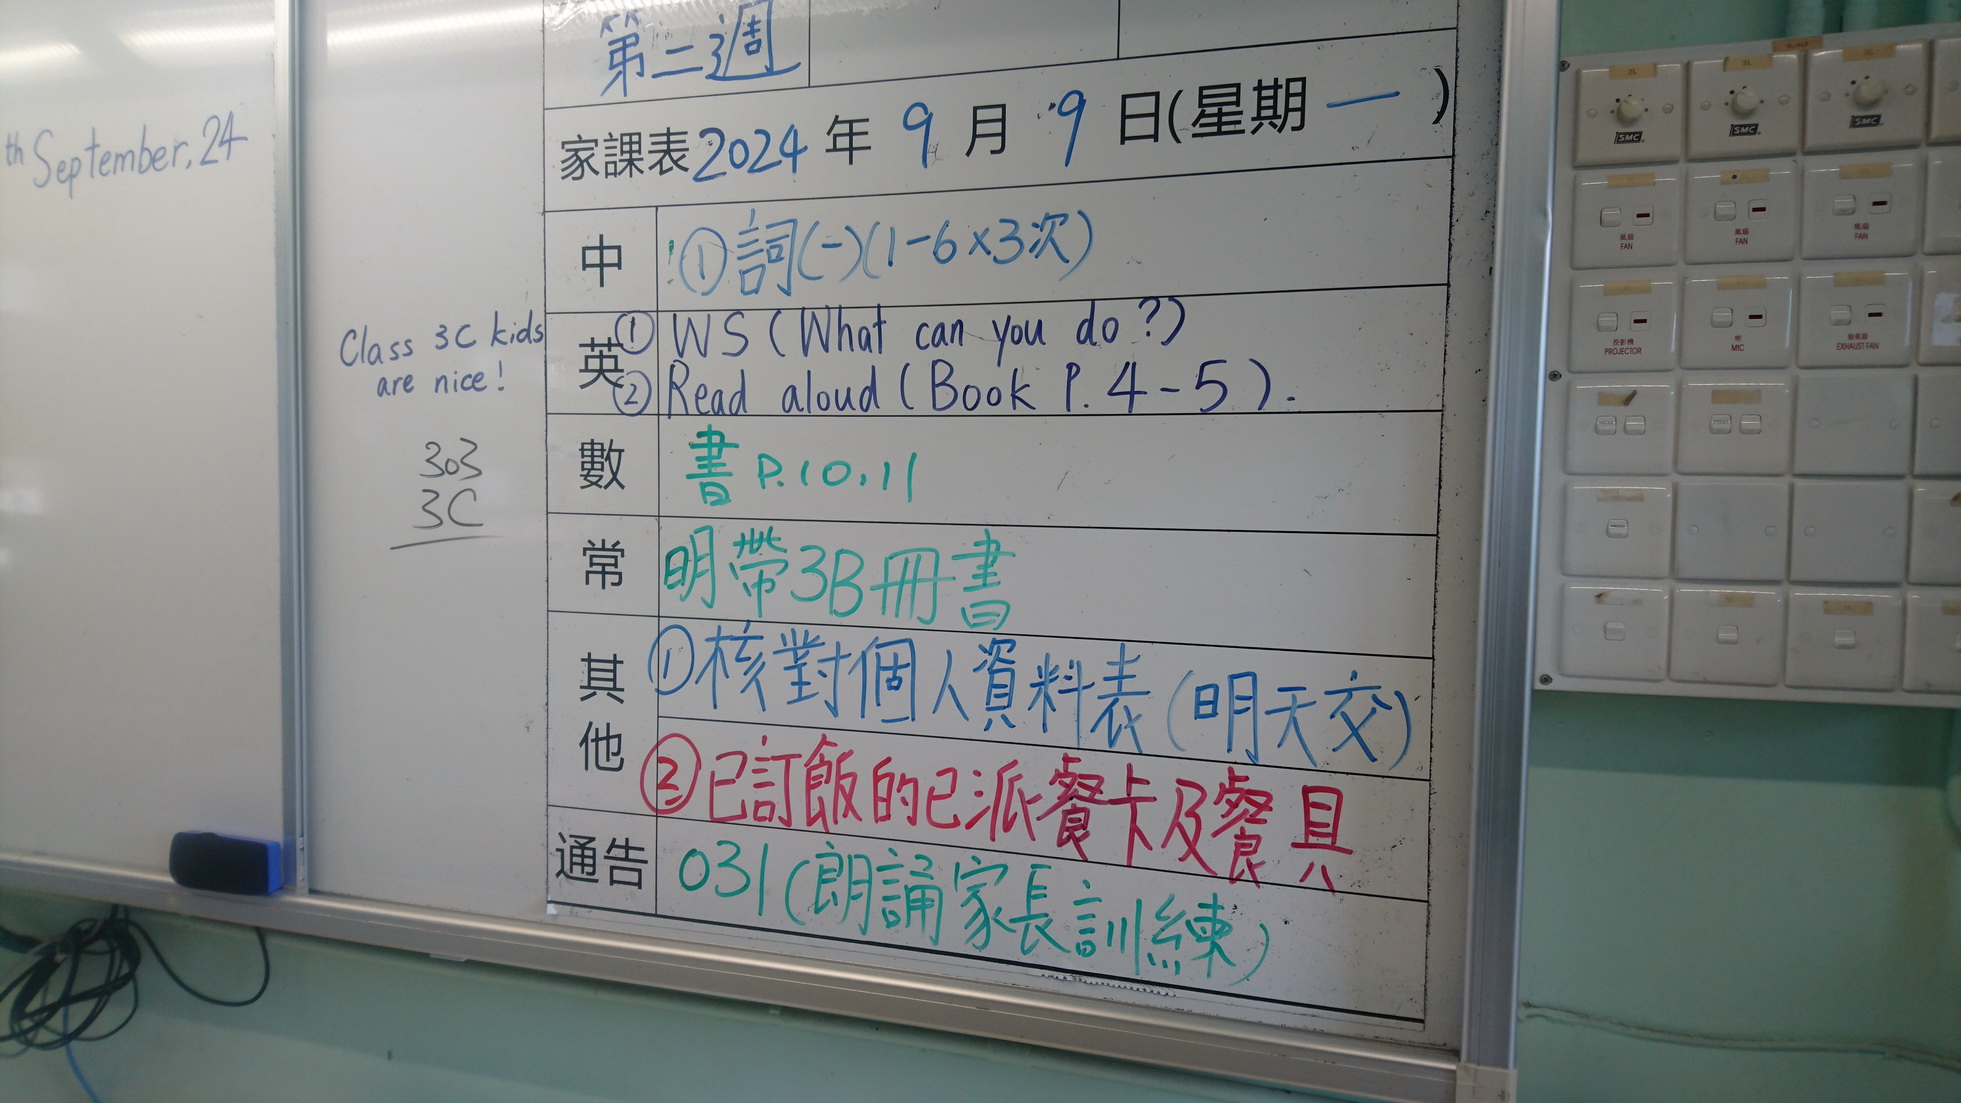 th September, 24
Class 3C kids
are nice!
303
3C
第二週
家課表 2024 年 9 月 9 日(星期一)
中 ①詞(一)(1-6×3次)
英 ① WS (What can you do?)
② Read aloud (Book P. 4-5).
數 書 P.10,11
常 明帶3B冊書
其他 ①核對個人資料表(明天交)
②已訂飯的已派餐卡及餐具
通告 031(朗誦家長訓練)
SMC
SMC
SMC
風扇
FAN
風扇
FAN
風扇
FAN
投影機
PROJECTOR
MIC
抽氣扇
EXHAUST FAN